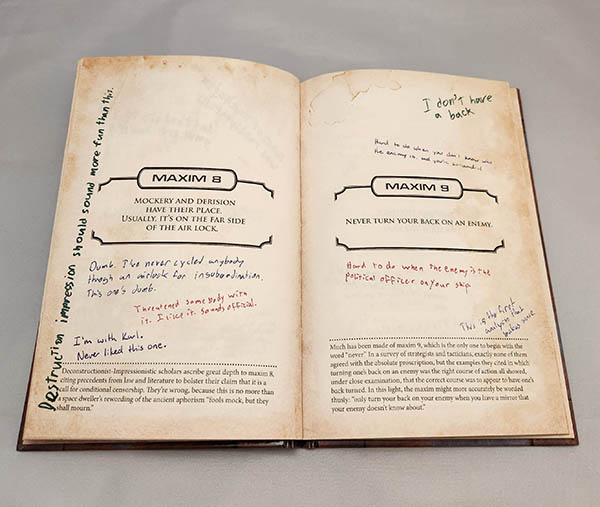 Destruction impression should sound more fun than this.
MAXIM 8
MOCKERY AND DERISION
HAVE THEIR PLACE.
USUALLY, IT'S ON THE FAR SIDE
OF THE AIR LOCK.
Dumb. I've never cycled anybody
though an airlock for insubordination.
This one's dumb.
Threatened somebody with
it. I like it. Sounds official.
I'm with Karl.
Never liked this one.
Deconstructionist-Impressionistic scholars ascribe great depth to maxim 8,
citing precedents from law and literature to bolster their claim that it is a
call for conditional censorship. They're wrong, because this is no more than
a space-dweller's rewording of the ancient aphorism "fools mock, but they
shall mourn."
I don't have
a back
Hard to do when you don't know who
the enemy is, and you're surrounded
MAXIM 9
NEVER TURN YOUR BACK ON AN ENEMY.
Hard to do when the enemy is the
political officer on your ship
This is the first
analysis that
makes sense
Much has been made of maxim 9, which is the only one to begin with the
word "never." In a survey of strategists and tacticians, exactly none of them
agreed with the absolute proscription, but the examples they cited in which
turning one's back on an enemy was the right course of action all showed,
under close examination, that the correct course was to appear to have one's
back turned. In this light, the maxim might more accurately be worded
thusly: "only turn your back on your enemy when you have a mirror that
your enemy doesn't know about."